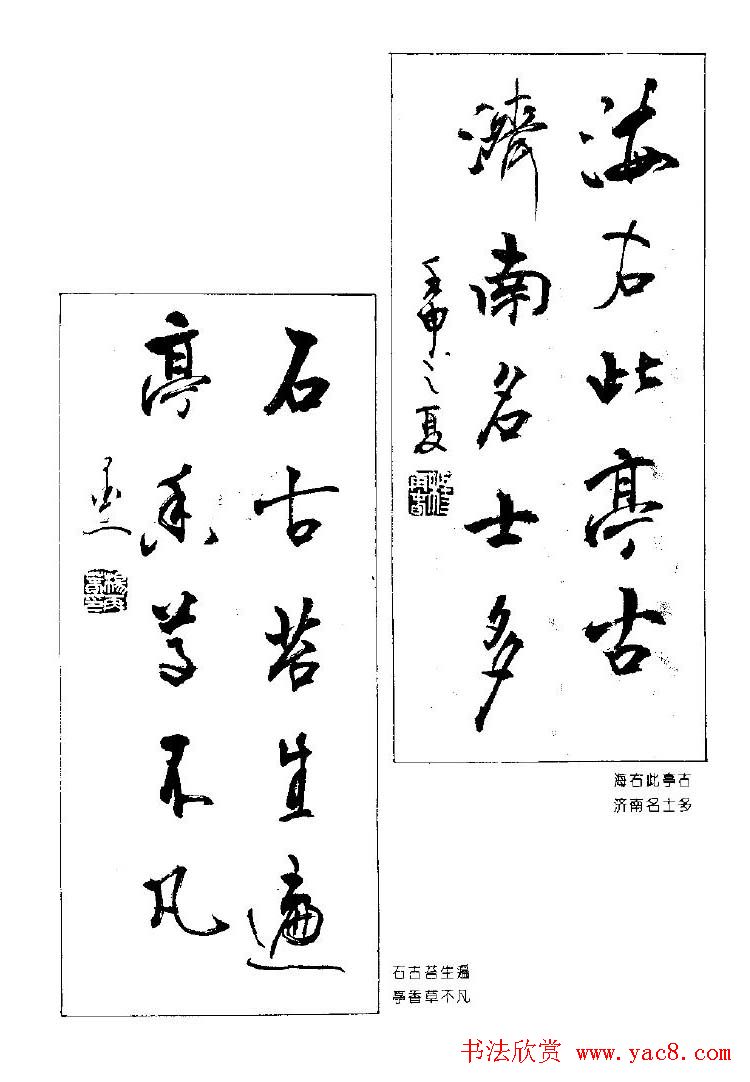 海右此亭古
濟南名士多
壬申之夏
海右此亭古
济南名士多
石古苔生遍
亭香草不凡
石古苔生遍
亭香草不凡
书法欣赏 www.yac8.com